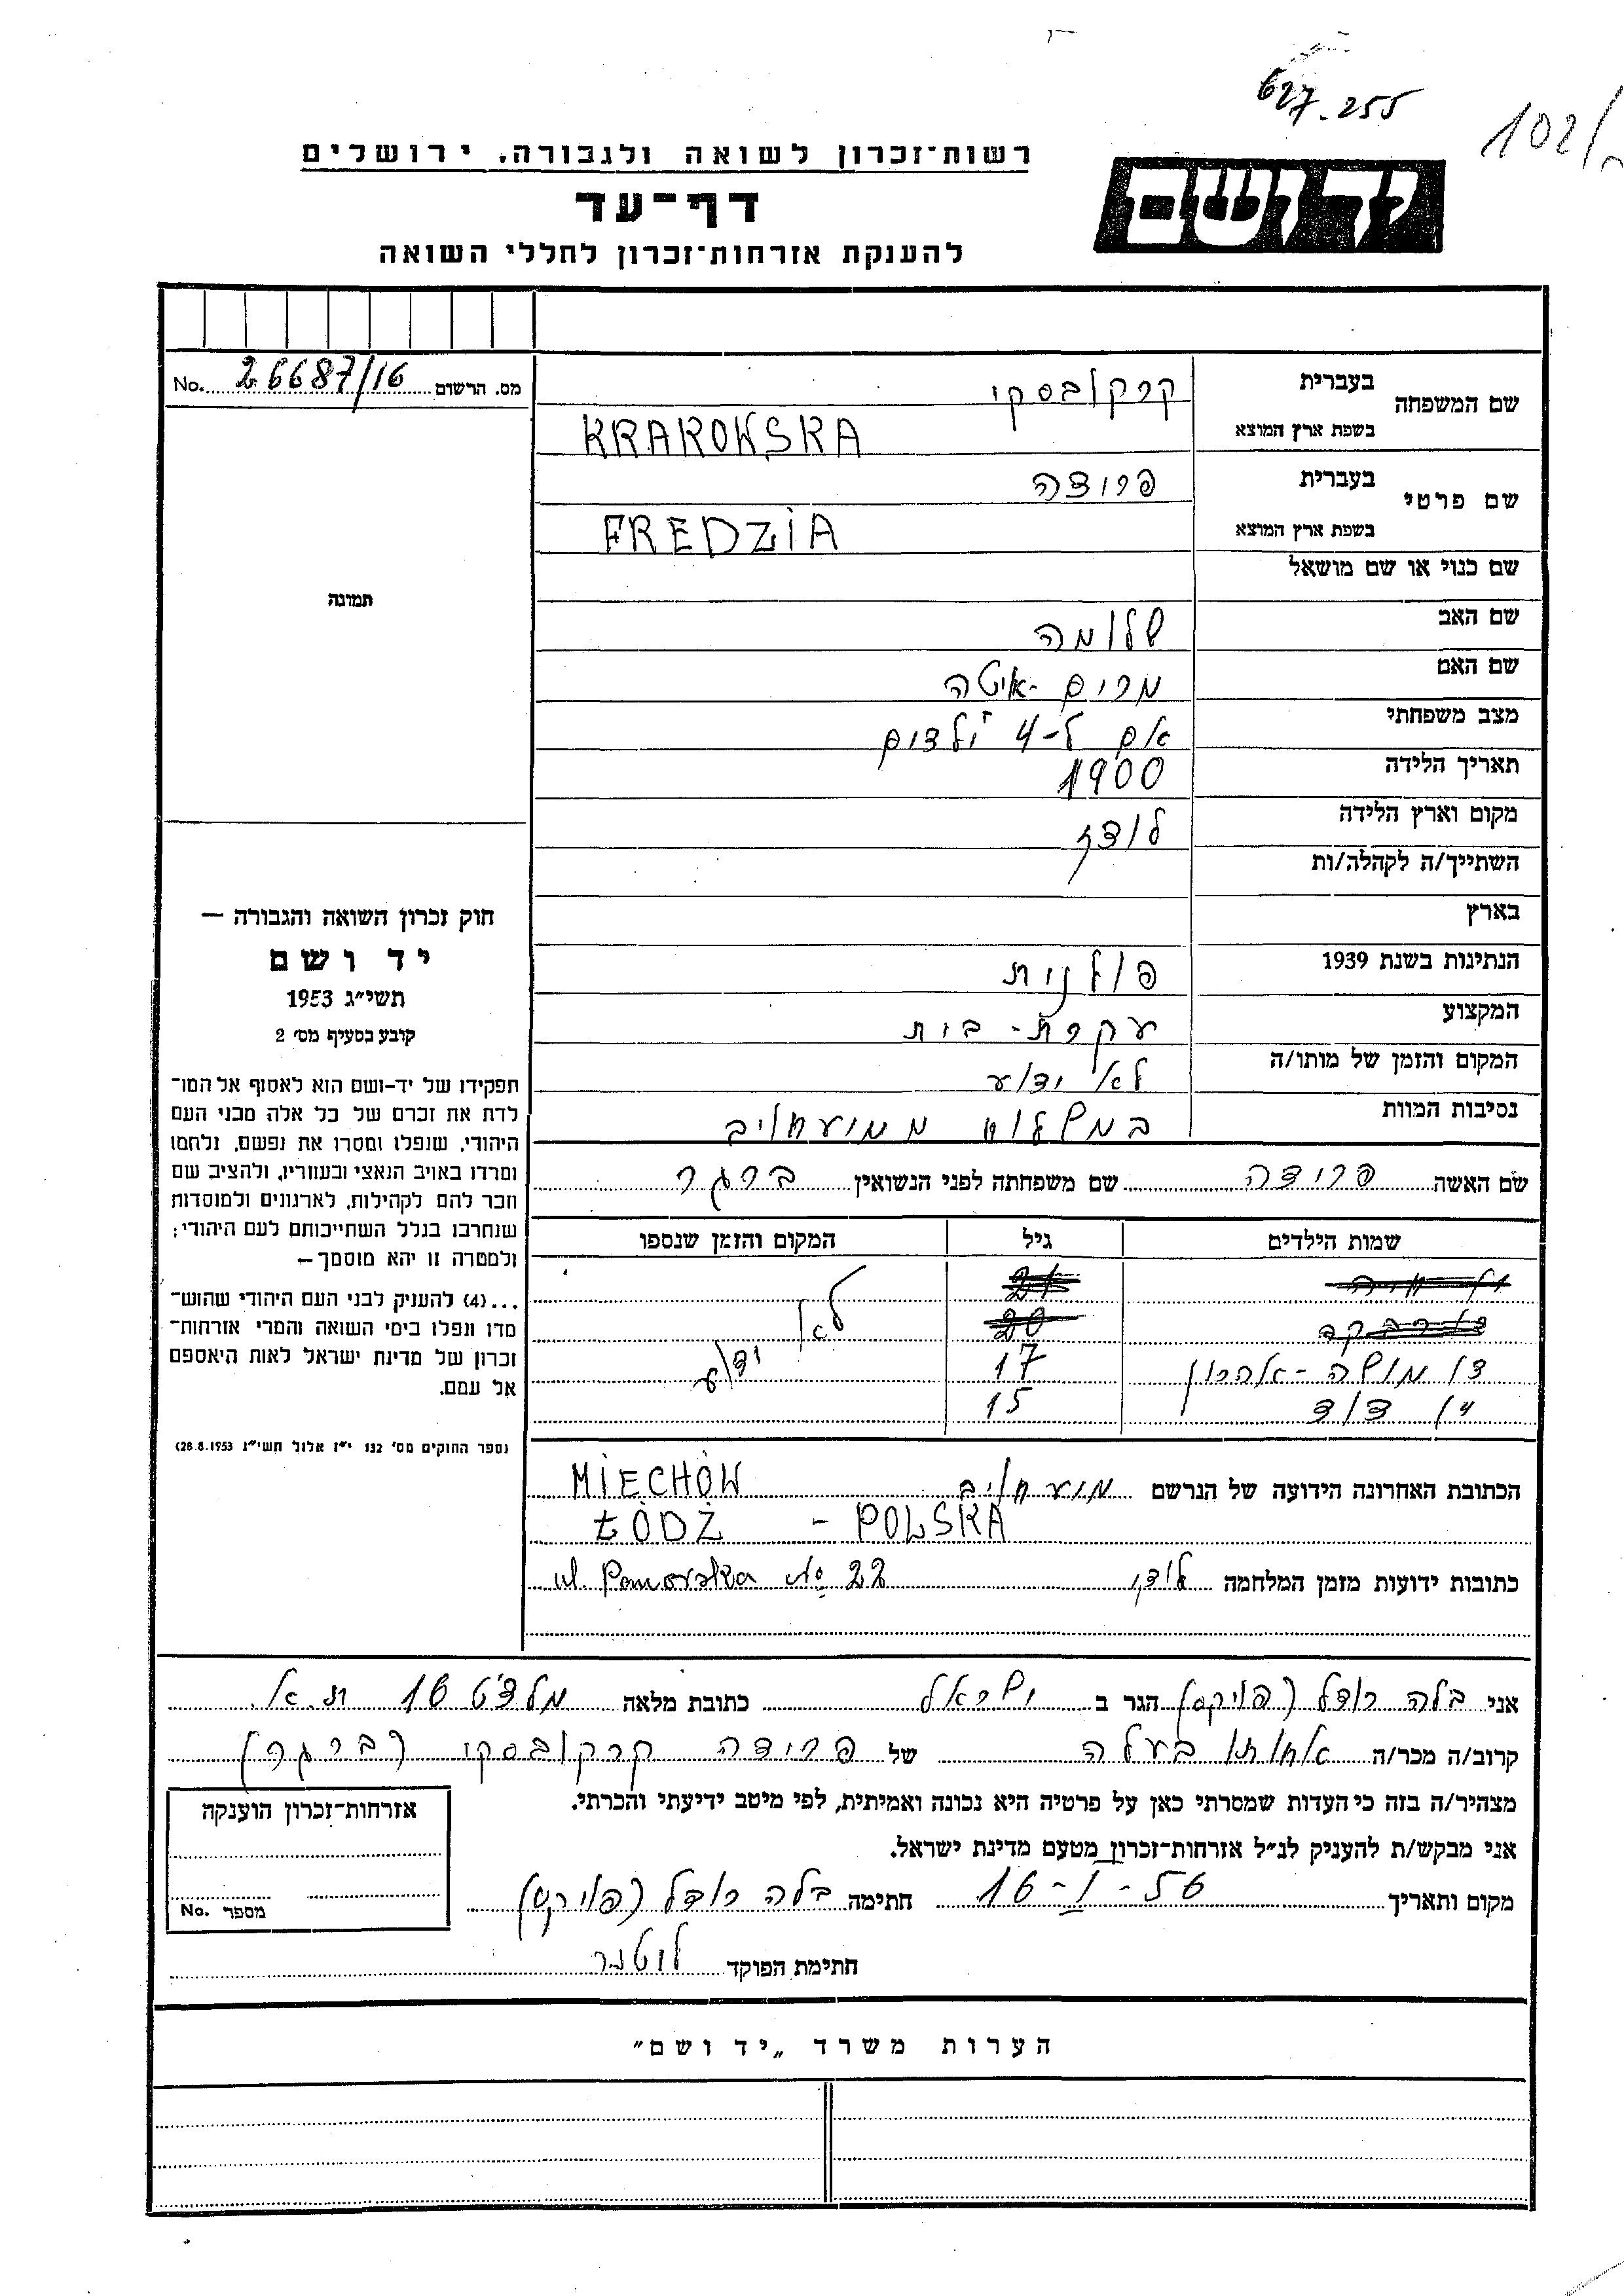 627.255
102/
רשות־זכרון לשואה ולגבורה, ירושלים
יד ושם
דף־עד
להענקת אזרחות־זכרון לחללי השואה
מס. הרשום 26687/16 No.
שם המשפחה בעברית קרקובסקי
בשפת ארץ המוצא KRAKOWSKA
שם פרטי בעברית פרידה
בשפת ארץ המוצא FREDZIA
שם כנוי או שם מושאל
שם האב שלומה
שם האם מרים-איטה
מצב משפחתי אם ל-4 ילדים
תאריך הלידה 1900
מקום וארץ הלידה לודז
השתייך/ה לקהלה/ות
בארץ
הנתינות בשנת 1939 פולנית
המקצוע עקרת-בית
המקום והזמן של מותו/ה לא ידוע
נסיבות המוות במשלוח ממיעחוב
שם האשה פרידה שם משפחתה לפני הנשואין ברגר
שמות הילדים גיל המקום והזמן שנספו
לא
3) משה-אהרון 17 ידוע
4) דוד 15
הכתובת האחרונה הידועה של הנרשם מיעחוב MIECHÓW
ŁÓDŹ - POLSKA
כתובות ידועות מזמן המלחמה לודז ul. Pomorska No 22
תמונה
חוק זכרון השואה והגבורה —
יד ושם
תשי״ג 1953
קובע בסעיף מס׳ 2
תפקידו של יד-ושם הוא לאסוף אל המו־
לדת את זכרם של כל אלה מבני העם
היהודי, שנפלו ומסרו את נפשם, נלחמו
ומרדו באויב הנאצי ובעוזריו, ולהציב שם
וזכר להם לקהילות, לארגונים ולמוסדות
שנחרבו בגלל השתייכותם לעם היהודי;
ולמטרה זו יהא מוסמך —
...(4) להעניק לבני העם היהודי שהוש־
מדו ונפלו בימי השואה והמרי אזרחות־
זכרון של מדינת ישראל לאות היאספם
אל עמם.
(ספר החוקים מס׳ 132 י״ז אלול תשי״ג 28.8.1953)
אני בלה רודל (פוירקס) הגר ב ישראל כתובת מלאה מלצ׳ט 16 ת.א.
קרוב/ה מכר/ה אחות בעלה של פרידה קרקובסקי (ברגר)
מצהיר/ה בזה כי העדות שמסרתי כאן על פרטיה היא נכונה ואמיתית, לפי מיטב ידיעתי והכרתי.
אני מבקש/ת להעניק לנ״ל אזרחות־זכרון מטעם מדינת ישראל.
מקום ותאריך 16-I-56 חתימה בלה רודל
חתימת הפוקד לוטנר
אזרחות־זכרון הוענקה
מספר No.
הערות משרד „יד ושם״